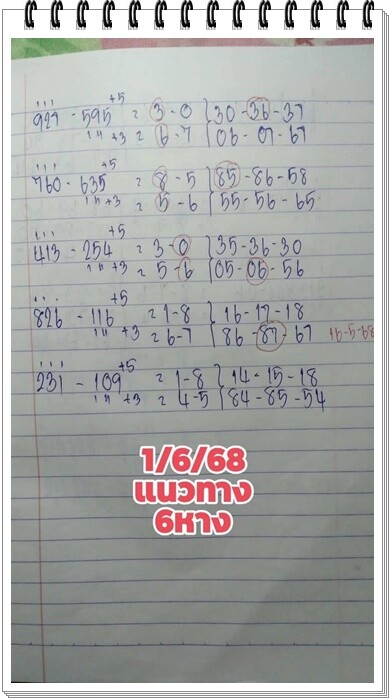 +5
927 - 595 = 3 - 0 } 30 - 36 - 37
+3 = 6 - 7 } 06 - 07 - 67
+5
760 - 635 = 8 - 5 } 85 - 86 - 58
+3 = 5 - 6 } 55 - 56 - 65
+5
413 - 254 = 3 - 0 } 35 - 36 - 30
+3 = 5 - 6 } 05 - 06 - 56
+5
826 - 116 = 1 - 8 } 16 - 17 - 18
+3 = 6 - 7 } 86 - 87 - 67 16-5-68
+5
231 - 109 = 1 - 8 } 14 - 15 - 18
+3 = 4 - 5 } 84 - 85 - 54
1/6/68
แนวทาง
6หาง